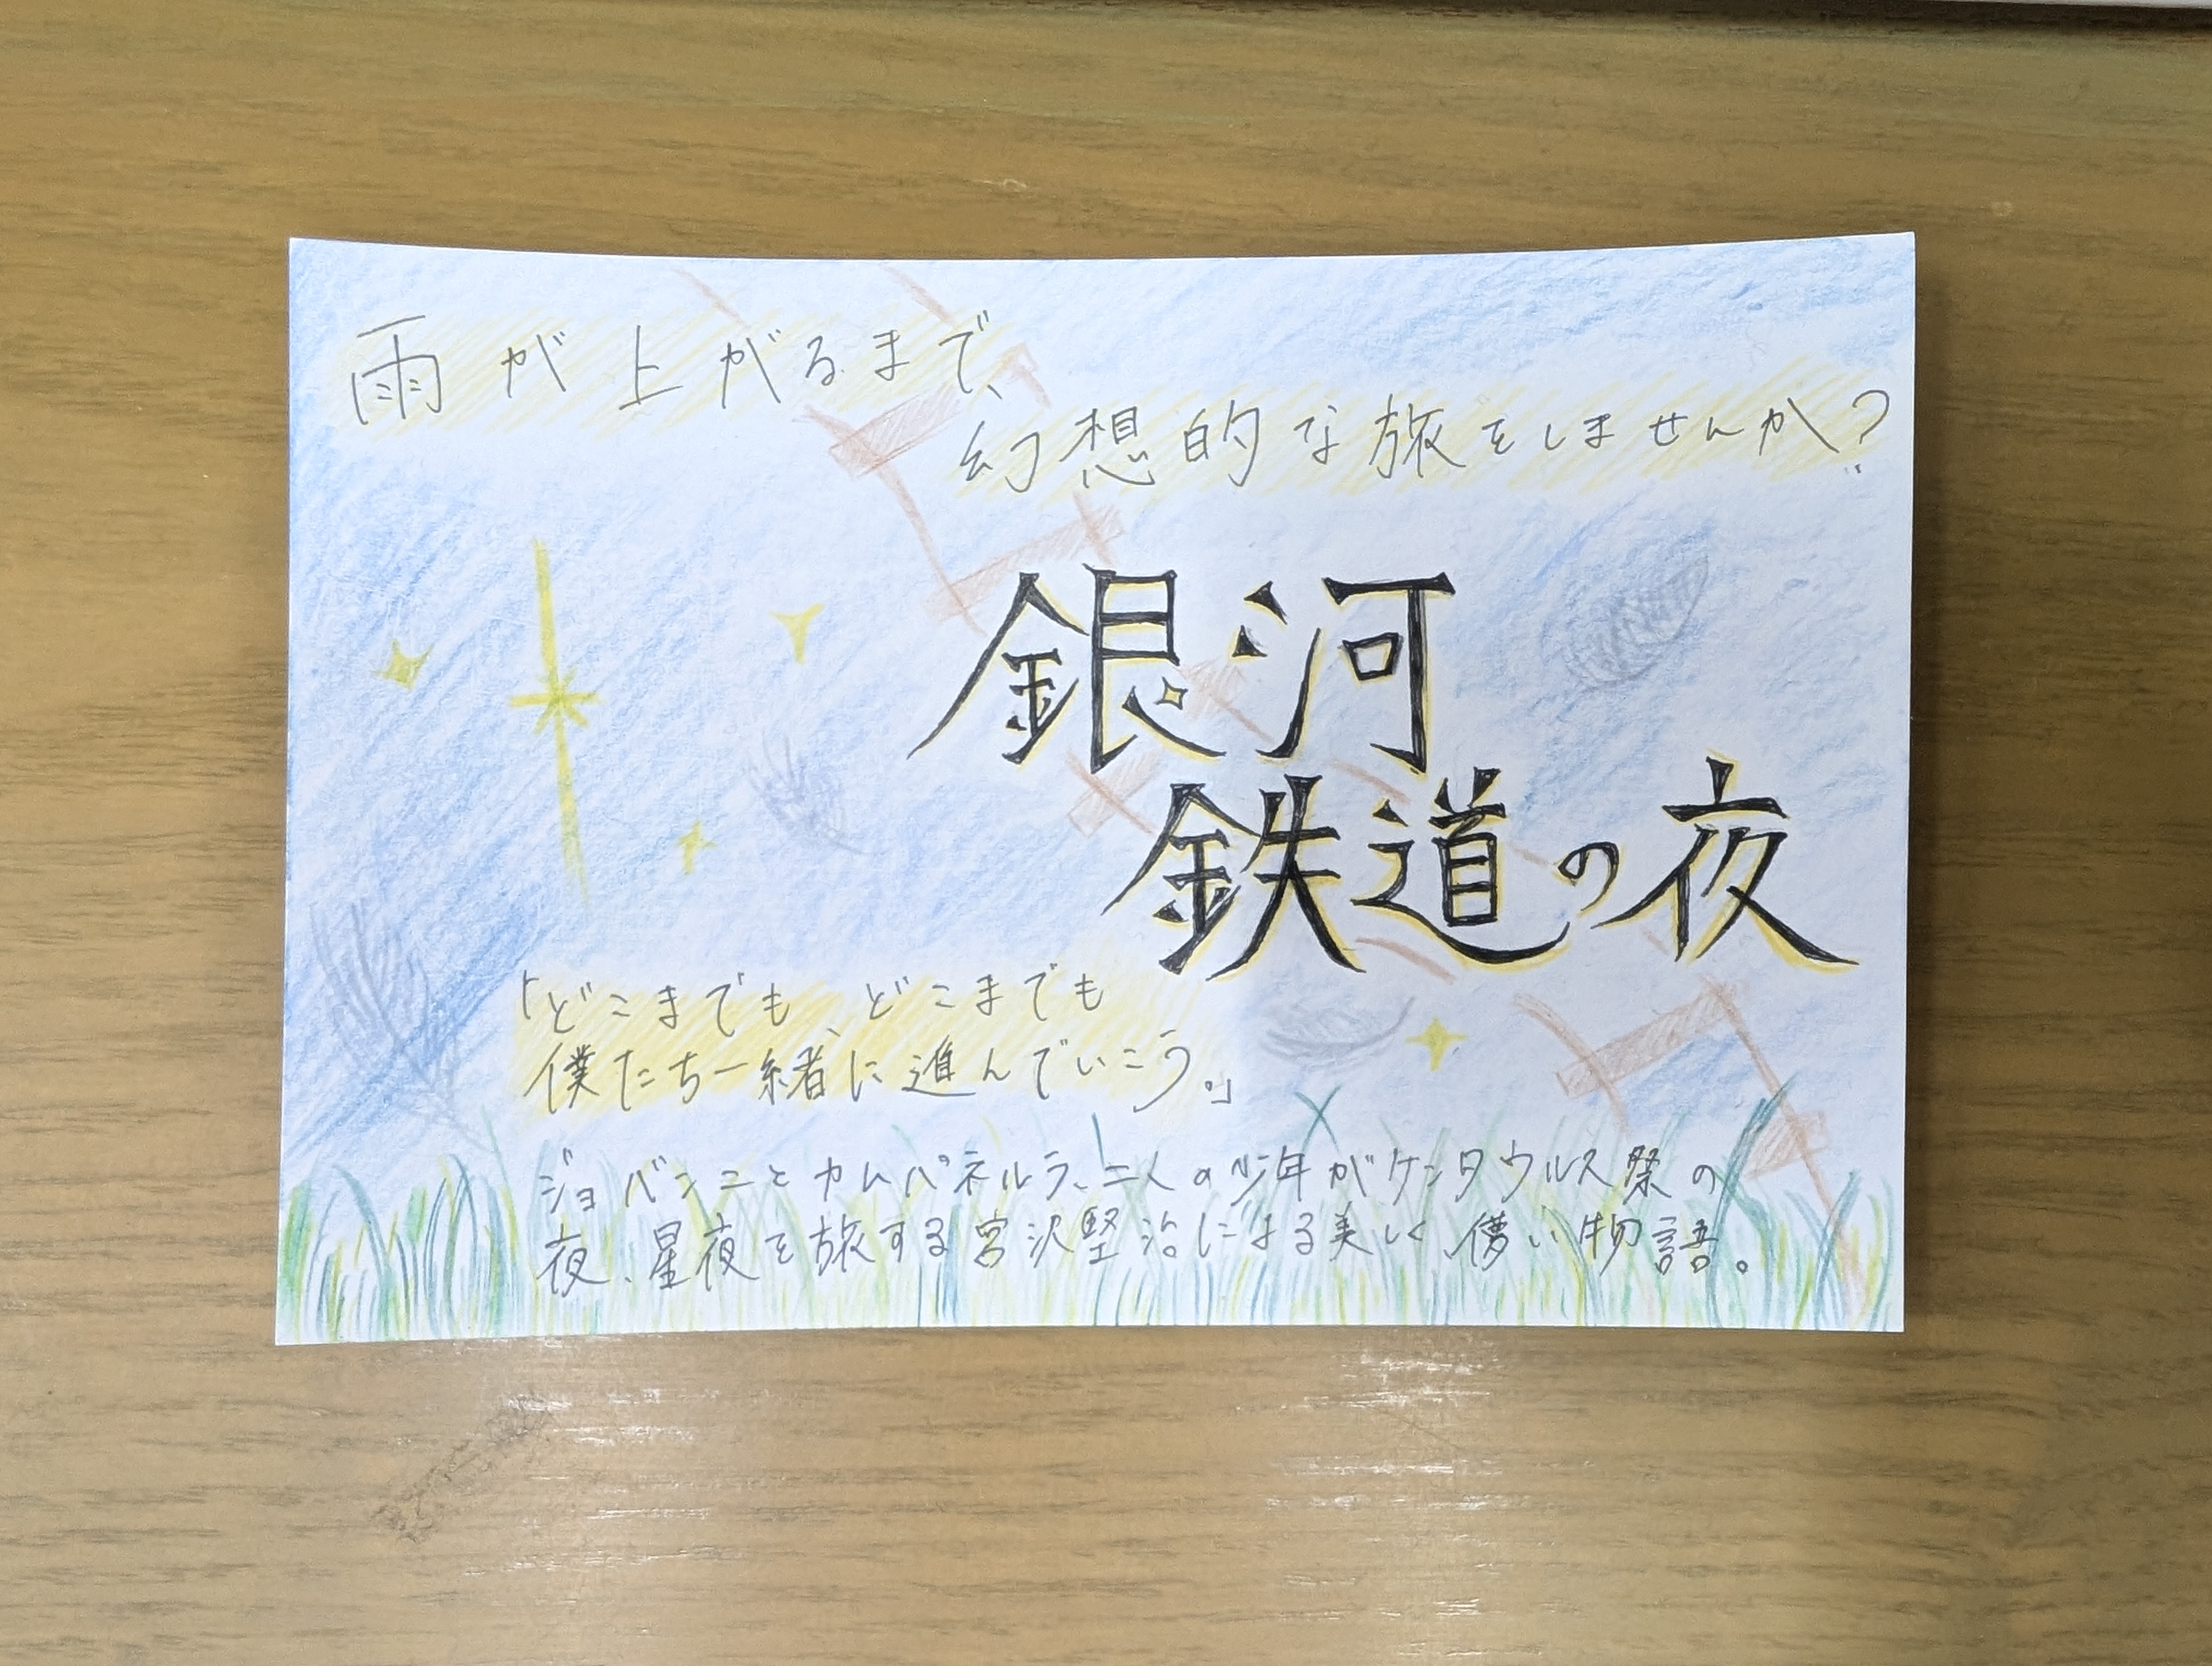 雨が上がるまで、
幻想的な旅をしませんか?
銀河
鉄道の夜
「どこまでも、どこまでも
僕たち一緒に進んでいこう。」
ジョバンニとカムパネルラ、二人の少年がケンタウルス祭の
夜、星夜を旅する宮沢堅治による美しく、儚い物語。